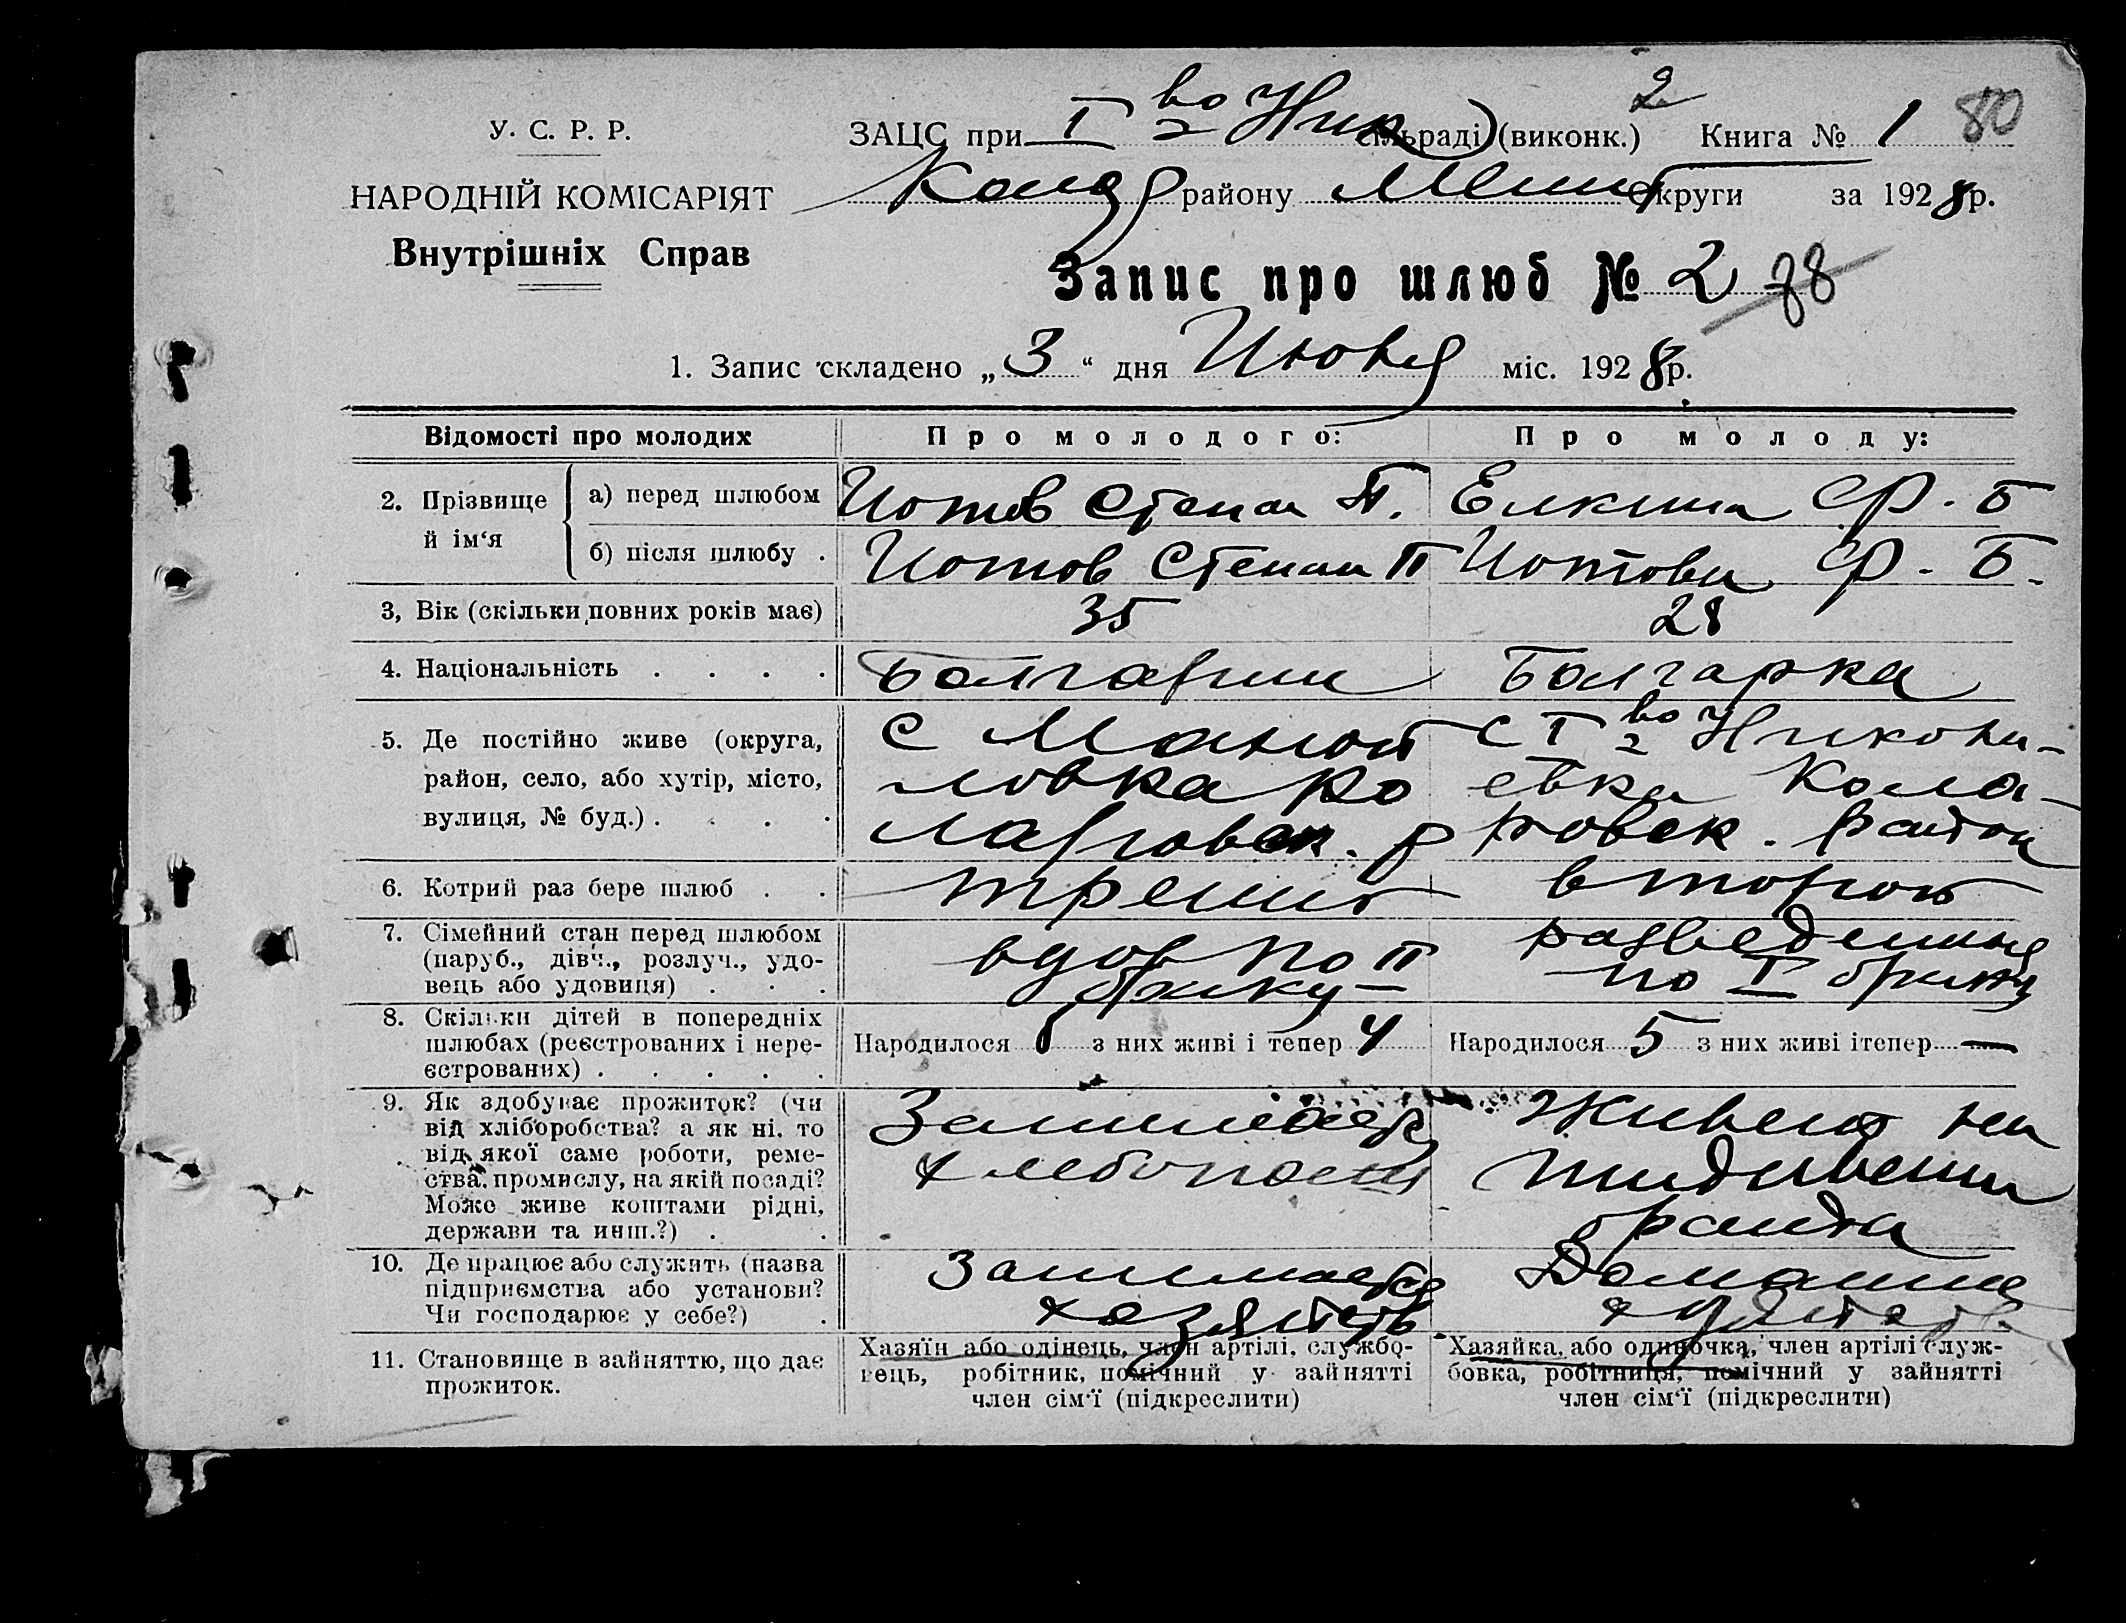 У. С. Р. Р.
НАРОДНІЙ КОМІСАРІЯТ
Внутрішніх Справ
ЗАЦС при I во Ник сільраді) (виконк.) 2 Книга № 1 80
Колар району Мелит Округи за 1928 р.
Запис про шлюб № 2 78
1. Запис складено „ 3 “ дня Июня міс. 1928 р.
Відомості про молодих Про молодого: Про молоду:
2. Прізвище й ім‘я
а) перед шлюбом Иотов Степан П. Елкина Ф. Б
б) після шлюбу . Иотов Степан П Иотова Ф. Б.
3, Вік (скільки повних років має) 35 28
4. Національність . . . . Болгарин Болгарка
5. Де постійно живе (округа, район, село, або хутір, місто, вулиця, № буд.) . . . .
с Мануй
ловка Ко
ларовск. р
с I во Никола-
евка Кола-
ровск. район
6. Котрий раз бере шлюб . . третий второй
7. Сімейний стан перед шлюбом
(паруб., дівч., розлуч., удо-
вець або удовиця) . . .
вдов по II
браку
разведенная
по I браку
8. Скільки дітей в попередніх
шлюбах (реєстрованих і нере-
єстрованих) . . . . .
Народилося з них живі і тепер 4 Народилося 5 з них живі і тепер —
9. Як здобуває прожиток? (чи
від хліборобства? а як ні, то
від якої саме роботи, реме-
ства, промислу, на якій посаді?
Може живе коштами рідні,
держави та инш.?) . .
Занимается
хлебопаш
Живет на
иждивении
брата
10. Де працює або служить (назва
підприємства або установи?
Чи господарює у себе?) .
Занимается
хозяйств
Домашнее
хозяйство
11. Становище в зайняттю, що дає
прожиток.
Хазяїн або одінець, член артілі, службо-
вець, робітник, помічний у зайнятті
член сім‘ї (підкреслити)
Хазяйка, або одиночка, член артілі служ-
бовка, робітниця, помічний у зайнятті
член сім‘ї (підкреслити)